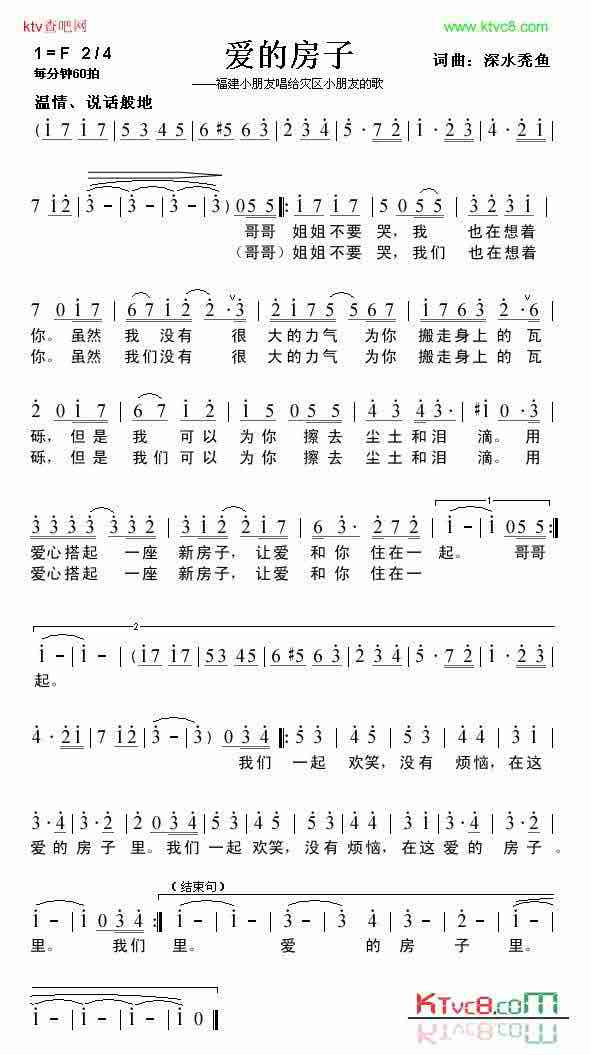 ktv查吧网
www.ktvc8.com
1=F 2/4
爱的房子
词曲：深水秃鱼
每分钟60拍
——福建小朋友唱给灾区小朋友的歌
温情、说话般地
(i 7 i 7 | 5 3 4 5 | 6 #5 6 3 | 2 3 4 | 5· 7 2 | i - | 2 3 4 | 4· 2 i |
7 i 2 | 3 - | 3 - | 3 - | 3) 0 5 5 ‖: i 7 i 7 | 5 0 5 5 | 3 2 3 i |
哥哥 姐姐不要 哭，我 也在想着
（哥哥）姐姐不要 哭，我们 也在想着
7 0 i 7 | 6 7 i 2 | 2 2· 3 | 2 i 7 5 5 6 7 | i 7 6 3 | 2· 6 |
你。虽然 我 没有 很 大的力气 为你 搬走身上 的 瓦
你。虽然 我们没有 很 大的力气 为你 搬走身上 的 瓦
2 0 i 7 | 6 7 i 2 | i 5 5 | 5 5 | 4 3 4 3· | #i 0· 3 |
砾，但是 我 可以 为你 擦去 尘土和泪 滴。用
砾，但是 我们 可以 为你 擦去 尘土和泪 滴。用
3 3 3 3 3 3 2 | 3 i 2 2 i i 7 | 6 3· 2 7 2 | i - | i 0 5 5 :‖
1
爱心搭起 一座 新房子，让爱 和你 住在一 起。 哥哥
爱心搭起 一座 新房子，让爱 和你 住在一
2
i - | i - | (i 7 i 7 | 5 3 4 5 | 6 #5 6 3 | 2 3 4 | 5· 7 2 | i· 2 3 |
起。
4· 2 i | 7 i 2 | 3 - | 3·) | 0 3 4 ‖: 5 3 | 4 5 | 5 3 4 | 3 i |
我们 一起 欢笑，没有 烦恼，在这
3· 4 | 3· 2 | 2 0 3 4 | 5 3 | 4 5 | 5 3 4 | 3 i | 3· 4 | 3· 2 |
爱的 房子 里。我们一起 欢笑，没有烦恼，在这 爱的 房子。
（结束句）
i - | i 0 3 4 :‖ i - | i - | 3 - | 4 - | 3 - | 2 - | i - |
里。 我们 里。 爱 的 房 子 里。
i - | i - | i - | i 0 ‖
KTvc8.com